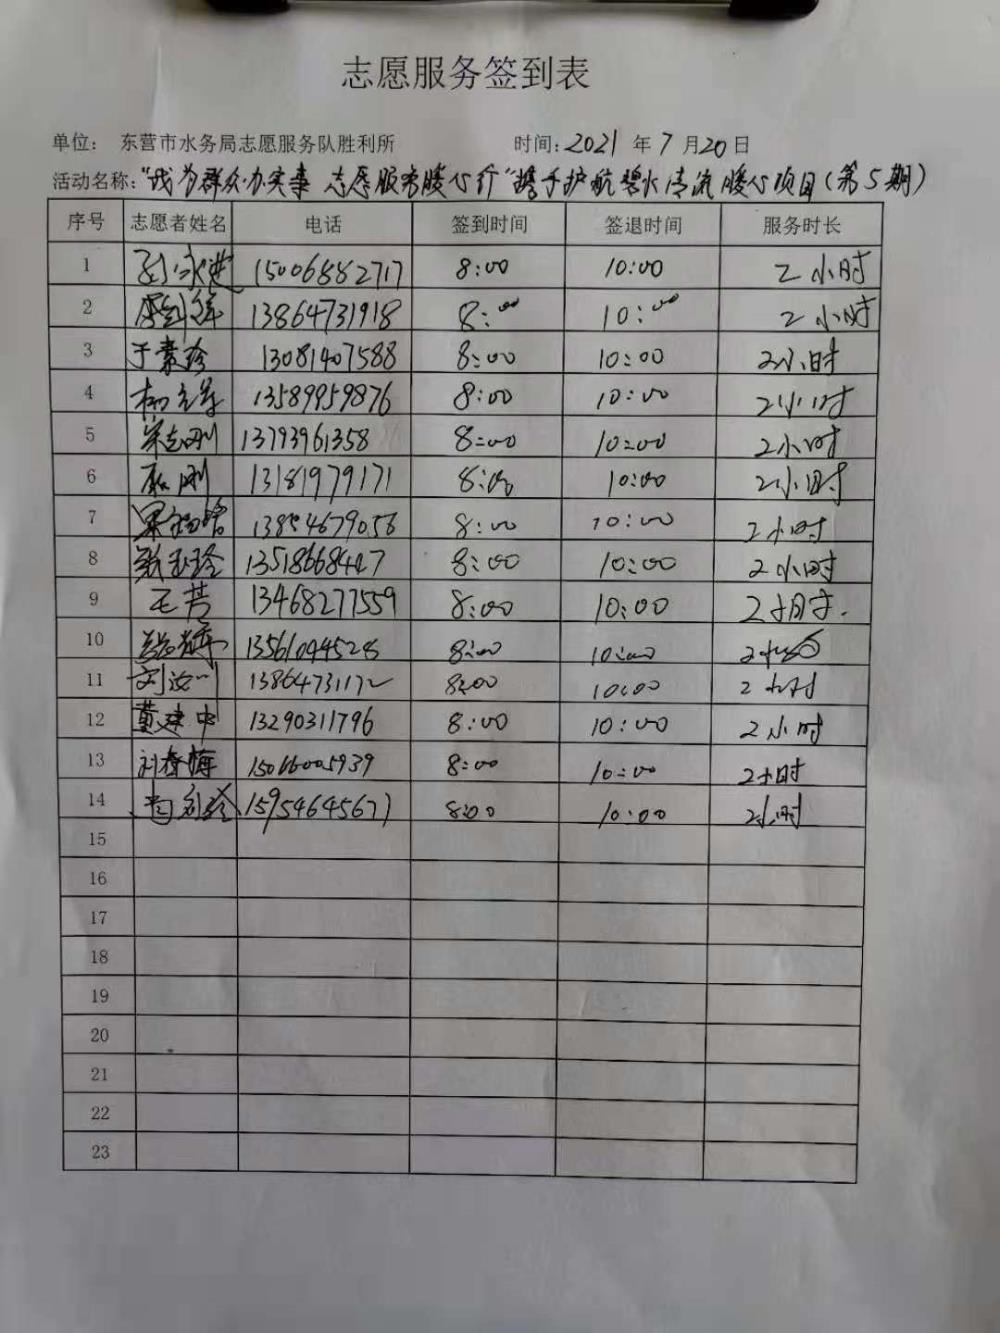 志愿服务签到表
单位： 东营市水务局志愿服务队胜利所 时间：2021 年 7 月 20 日
活动名称："我为群众办实事 志愿服务暖心行"携手护航碧水清流暖心项目（第5期）
序号 志愿者姓名 电话 签到时间 签退时间 服务时长
1 15006882717 8:00 10:00 2小时
2 13864731918 8:00 10:00 2小时
3 于素珍 13081407588 8:00 10:00 2小时
4 13589959876 8:00 10:00 2小时
5 宋志刚 13793961358 8:00 10:00 2小时
6 13181979171 8:00 10:00 2小时
7 13854679058 8:00 10:00 2小时
8 张玉玲 13518668447 8:00 10:00 2小时
9 王芳 13468277559 8:00 10:00 2小时.
10 13561044528 8:00 10:00
11 刘汝川 13864731172 8:00 10:00 2小时
12 黄建中 13290311796 8:00 10:00 2小时
13 刘春梅 15066005939 8:00 10:00 2小时
14 15954645677 8:00 10:00 2小时
15
16
17
18
19
20
21
22
23